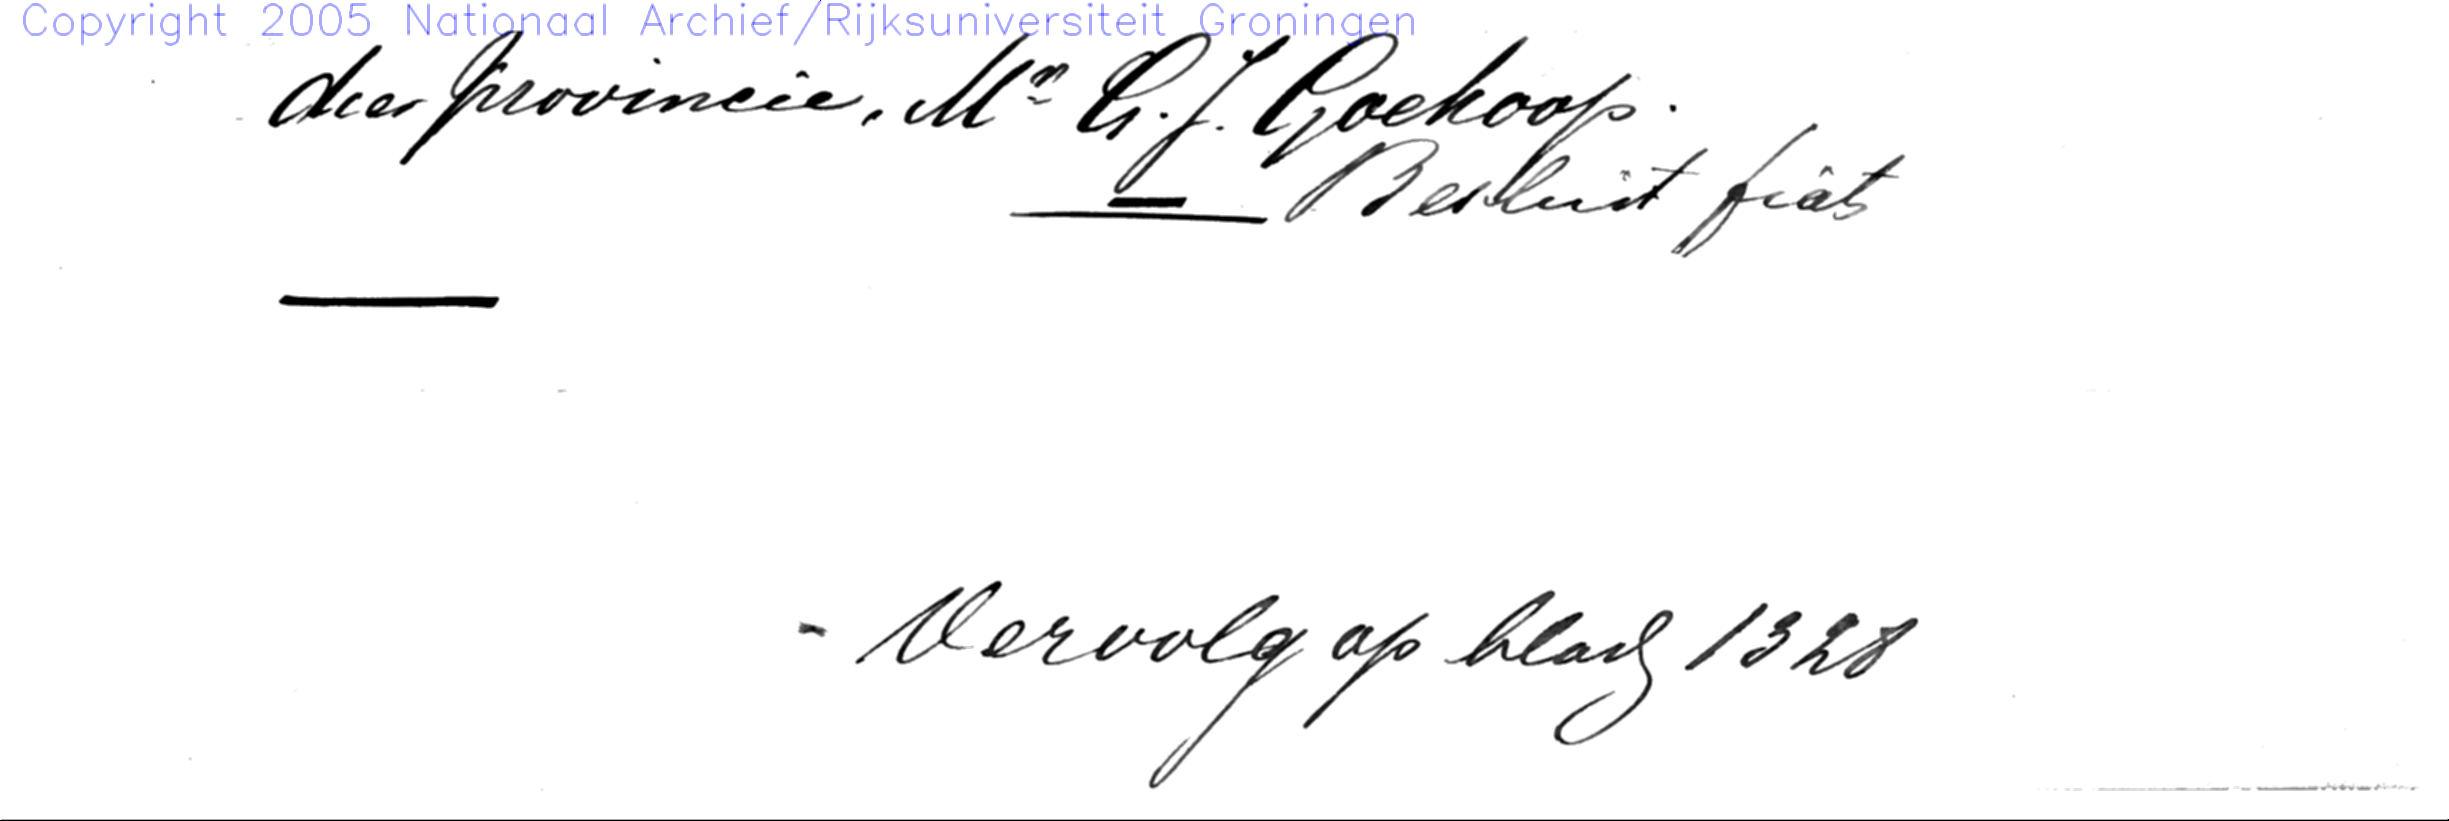 Copyright 2005 Nationaal Archief/Rijksuniversiteit Groningen
der provincie, Mr G. J. Goekoop.
Besluit fiat
- Vervolg op bladz 1328